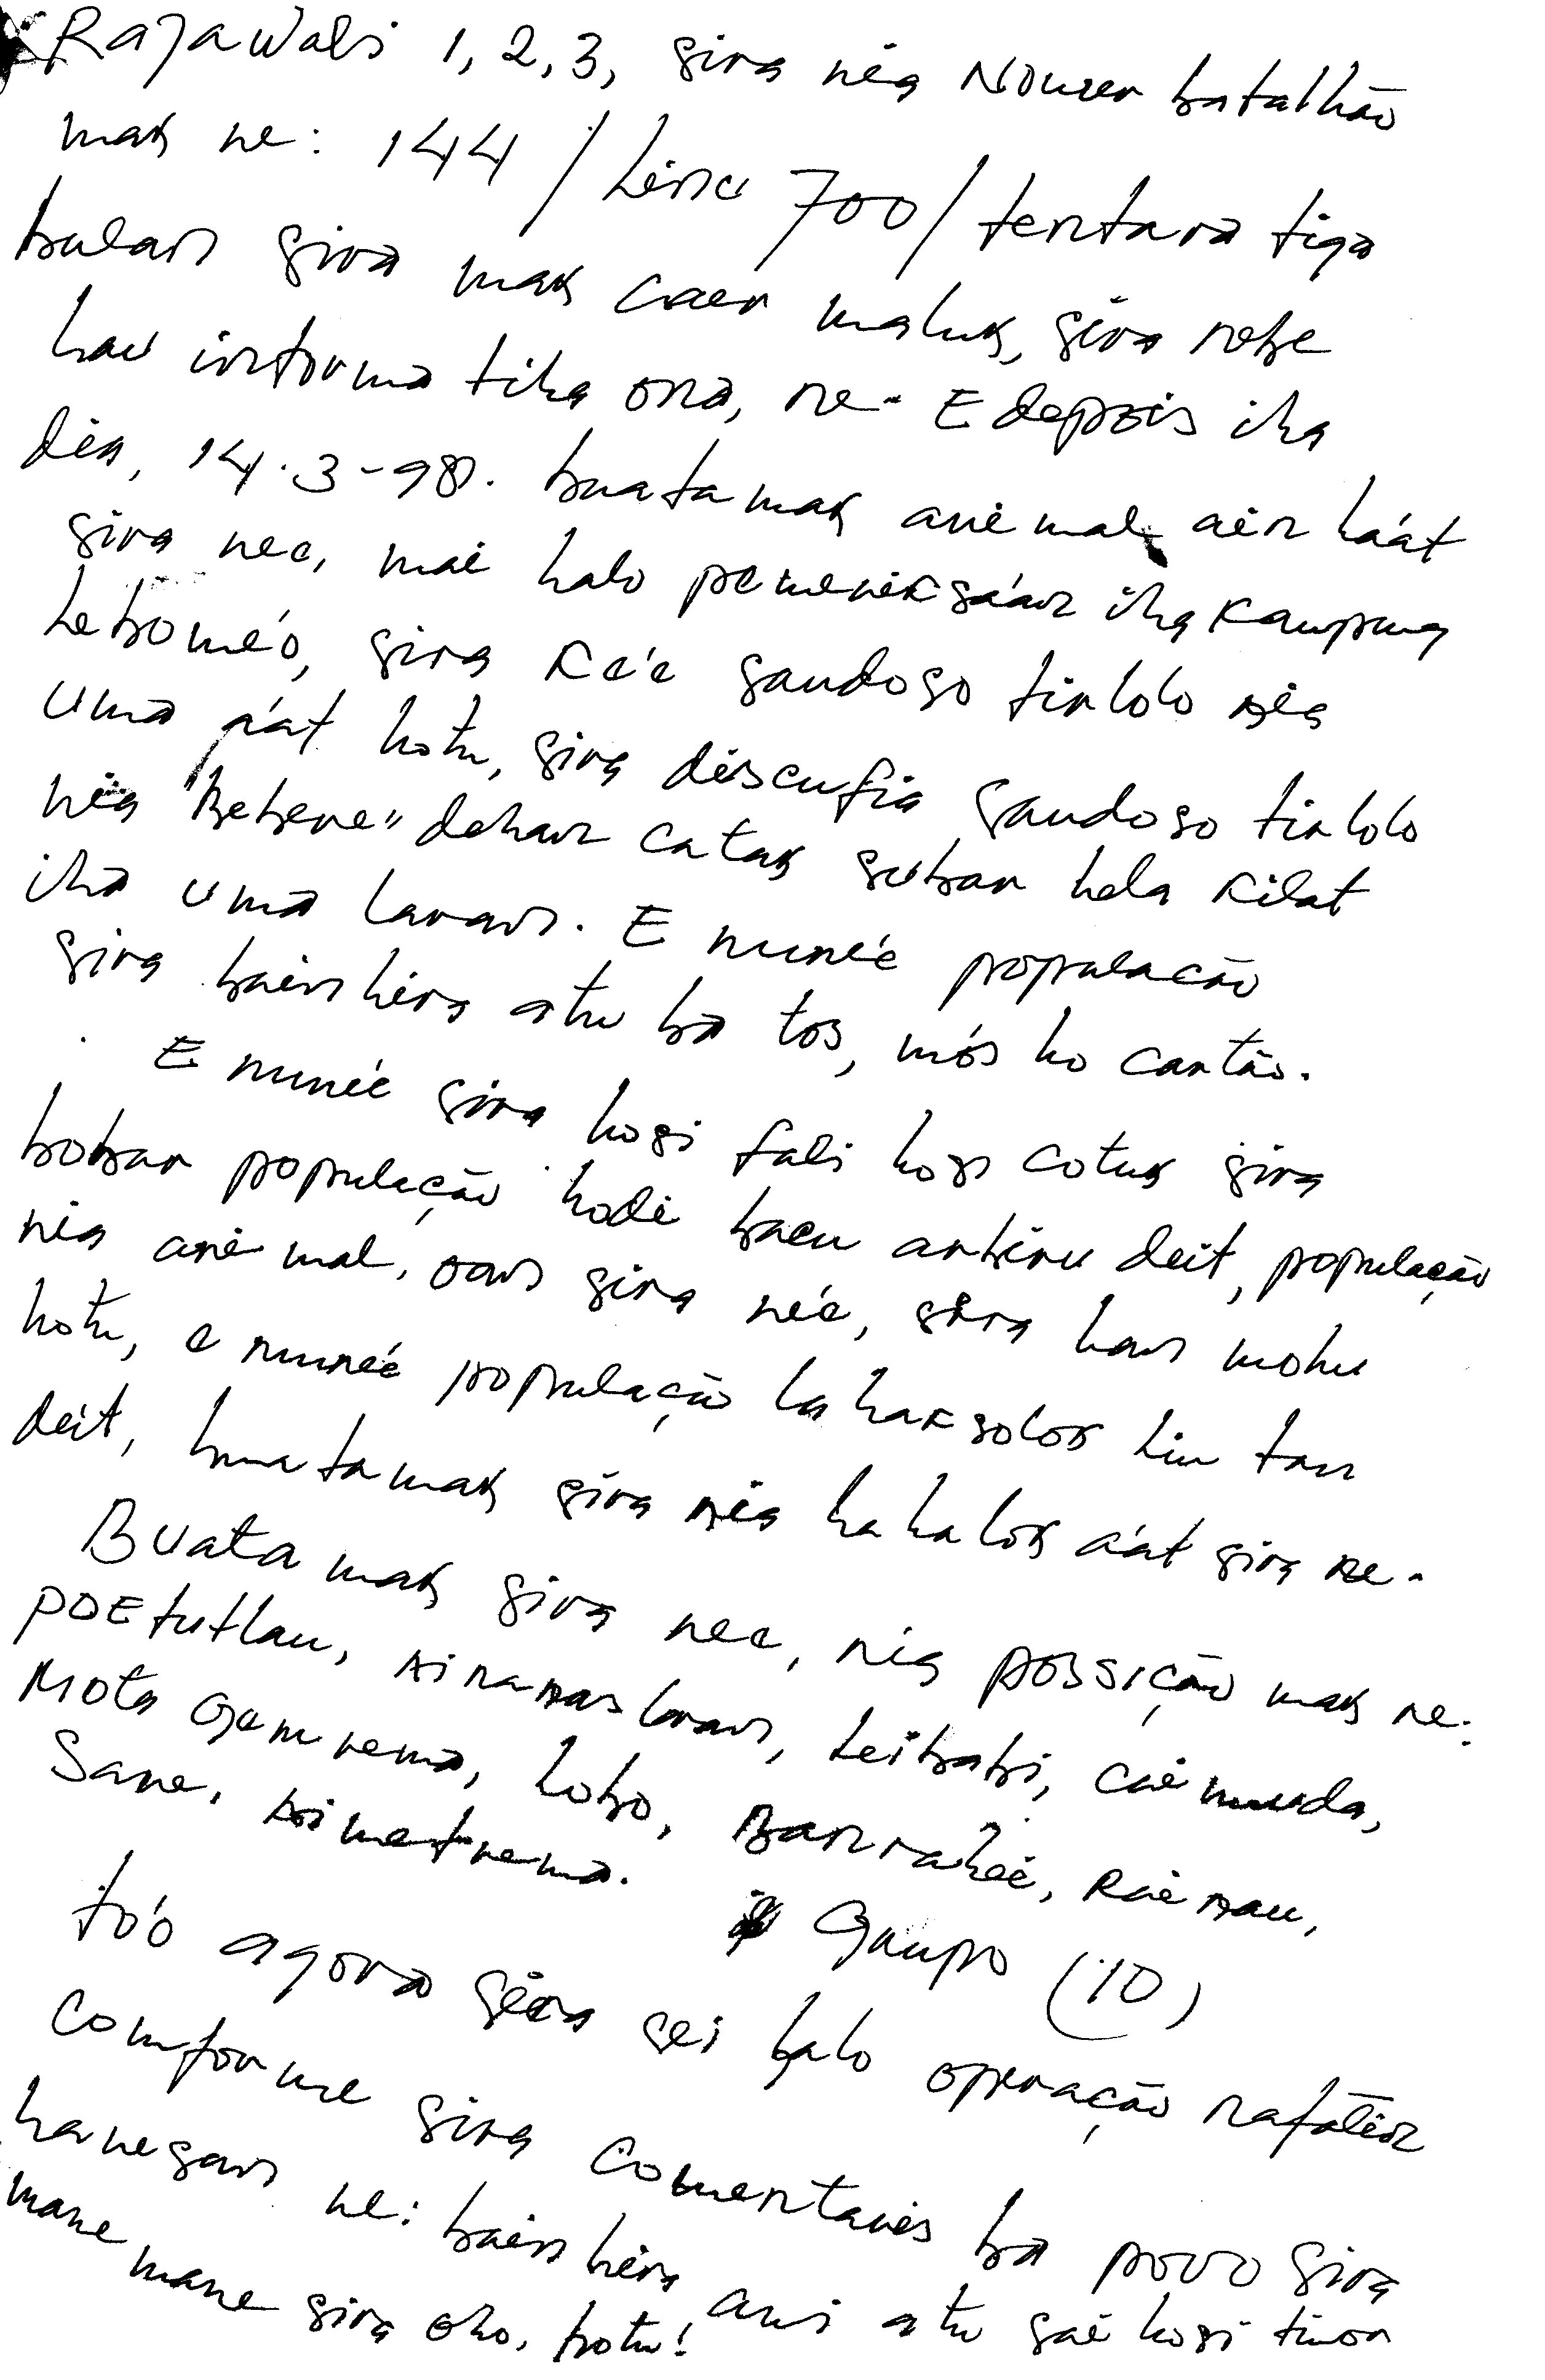 Rajawali 1, 2, 3, sira nia Nomer batalhão
mak ne: 144 / Linu 700 / tentara tiga
bulan sira mak caer maluk, sira nebe
hau informa tiha ona, ne. E depois iha
dia, 14.3-98. buatamak animal ain háat
sira nee, mai halo pemeriksáan iha Kampung
Lebomé'o, sira ké'e saudoso tirlolo nia
uma rá'at hotu, sira discufia saudoso tirlolo
nia "Bebere" dehan catak subar hela kilat
iha uma laran. E nuneé população
sira bainhira atu ba tos, mós ho cartão.
E nuneé sira hosi fali hosi cotuk sira
bobar população hodi bacu arbiru deit, população
nia animal, oan sira né'e, sira han mohu
hotu, e nuneé população la haksolok liu tan
deit, buatamak sira nia hahalok á'at sira ne.
Buata mak sira nee, nia possição mak ne:
Poetutlau, Ainanaslaran, Leibabi, Caimuda,
Mota Gemrema, Lobo, Banrahéé, Raimau,
Sane, Aimetrema. Grupo (10)
tó'o agora sira sei halo operação nafatin
comforme sira comentaris ba povo sira
hanesan ne: bainhira ami atu sai hosi timor
mane mane sira oho, hotu!